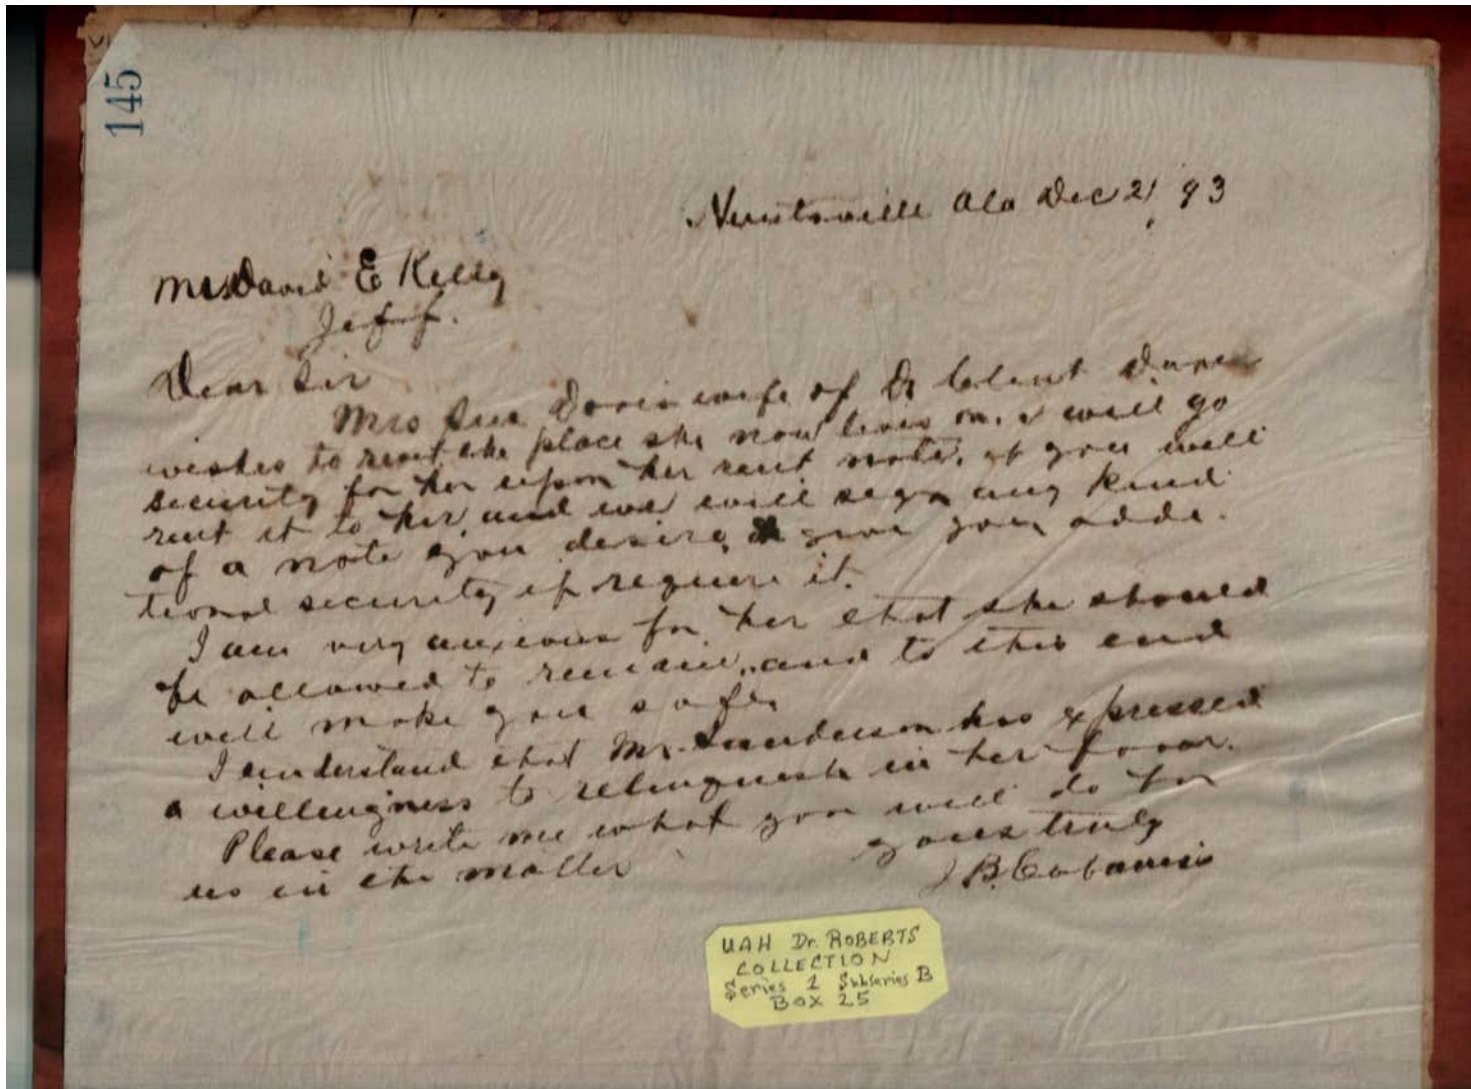 145
Huntsville Ala Dec 21, 93
David E Kelly
Jeff.
Dear Sir
Mrs Sue Davis wife of Dr Clint Davis
wishes to rent the place she now lives on. I will go
security for her upon her rent note, if you will
rent it to her, and we will sign any kind
of a note you desire, & give you addi-
tional security if require it.
I am very anxious for her that she should
be allowed to remain, and to this end
will make you safe.
I understand that Mr. Sanderson has expressed
a willingness to relinquish in her favor.
Please write me what you will do for
us in the matter
yours truly
J B. Cabaniss
UAH Dr. ROBERTS
COLLECTION
Series 1 Subseries B
BOX 25